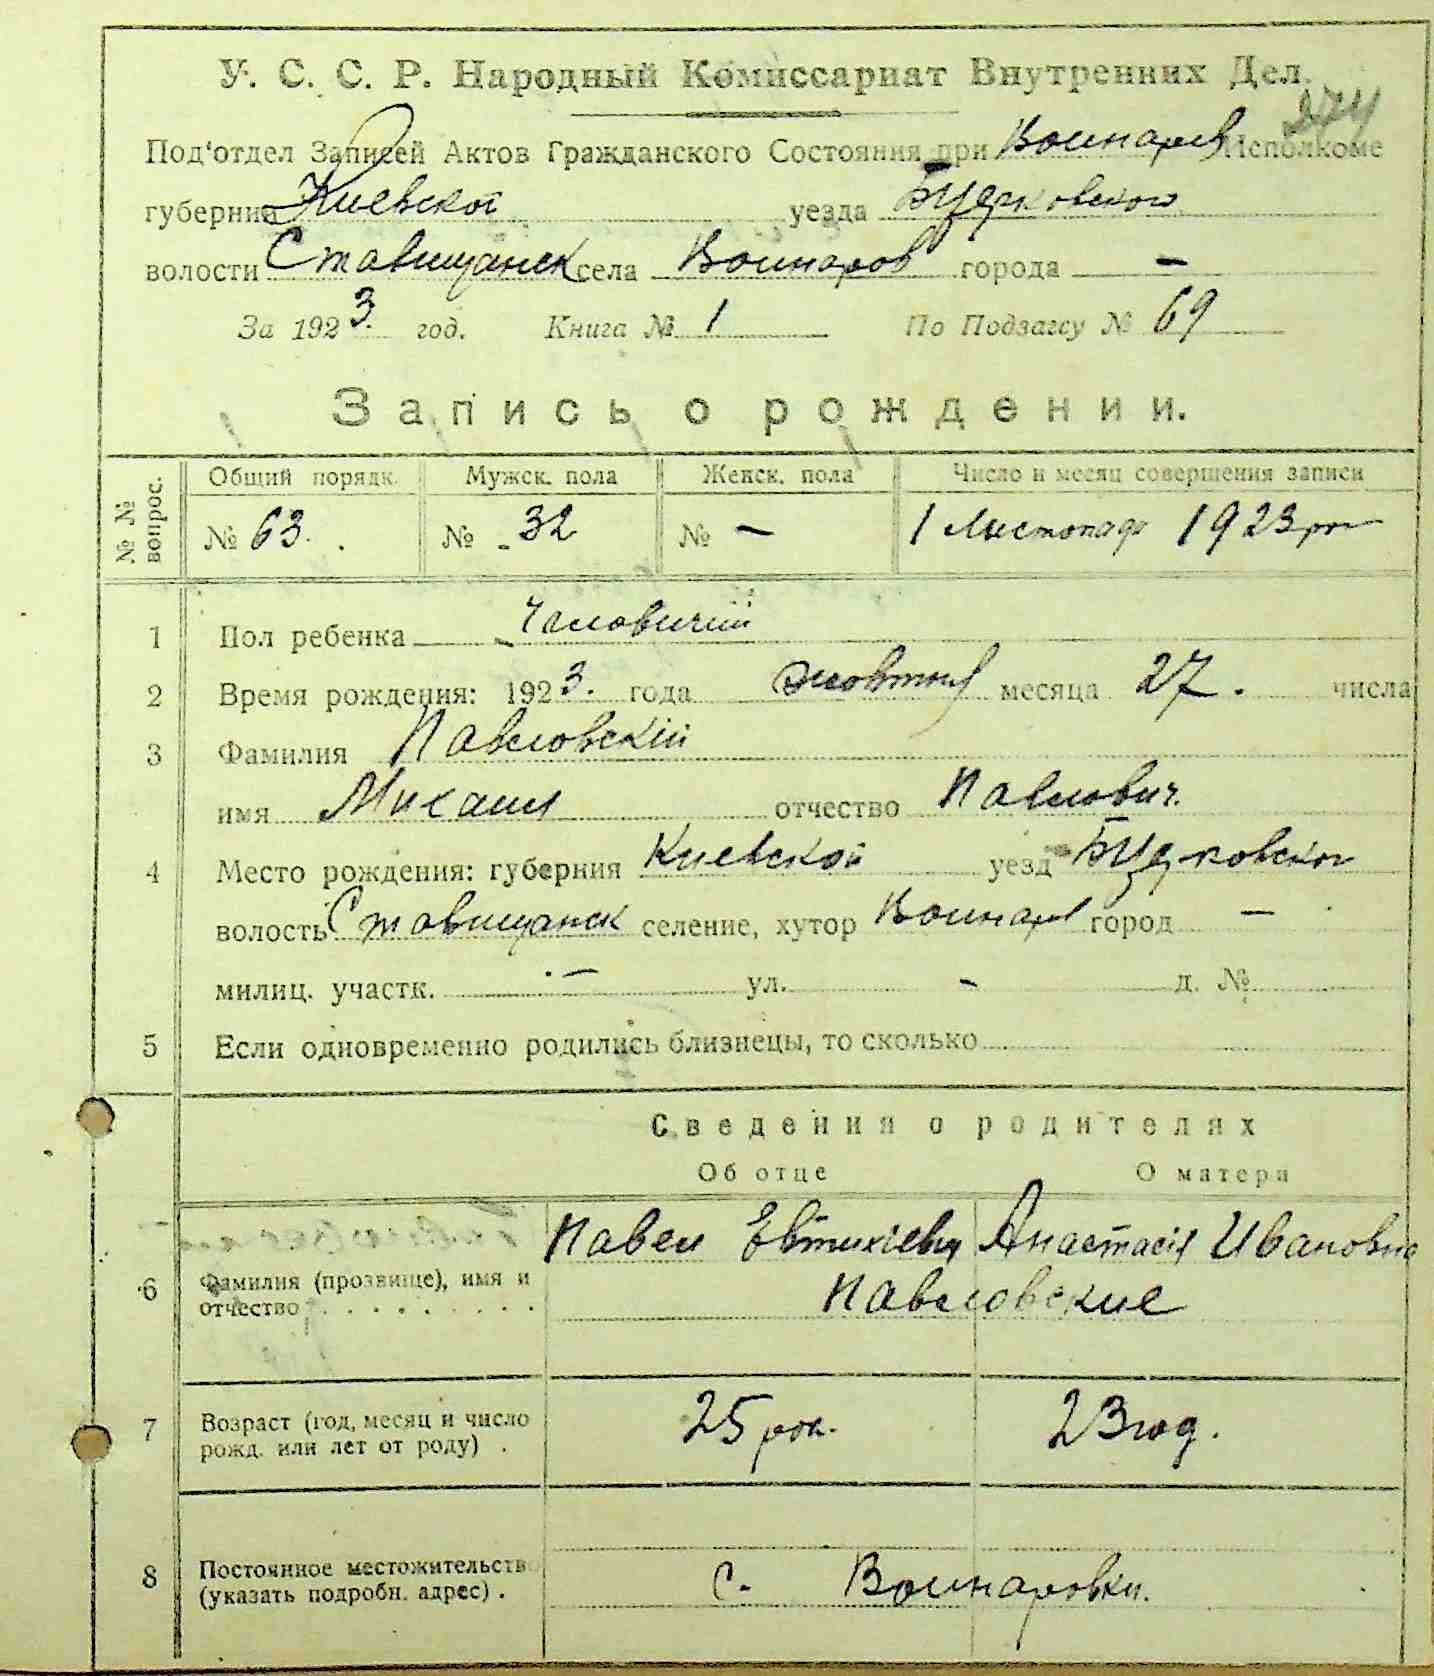 274
У. С. С. Р. Народный Комиссариат Внутренних Дел.
Под'отдел Записей Актов Гражданского Состояния при Воинаров Исполкоме
губернии Киевской уезда Бцерковского
волости Ставищанск села Воинаров города —
За 1923. год. Книга № 1 По Подзагсу № 69
Запись о рождении.
№ № вопрос.
Общий порядк. Мужск. пола Женск. пола Число и месяц совершения записи
№ 63. № 32 № — 1 Листопада 1923 рок
1 Пол ребенка Чаловичий
2 Время рождения: 1923. года жовтня месяца 27. числа
3 Фамилия Павловскій
имя Михаил отчество Павлович.
4 Место рождения: губерния Киевской уезд Бцерковског
волость Ставищанск селение, хутор Воинаров город —
милиц. участк. — ул. - д. №
5 Если одновременно родились близнецы, то сколько
Сведения о родителях
Об отце О матери
Павел Евтихіевич Анастасія Ивановна
6 Фамилия (прозвище), имя и
отчество
Павловские
7 Возраст (год, месяц и число
рожд. или лет от роду) . 25 рок. 23 год.
8 Постоянное местожительство
(указать подробн. адрес) . с. Воинаровки.